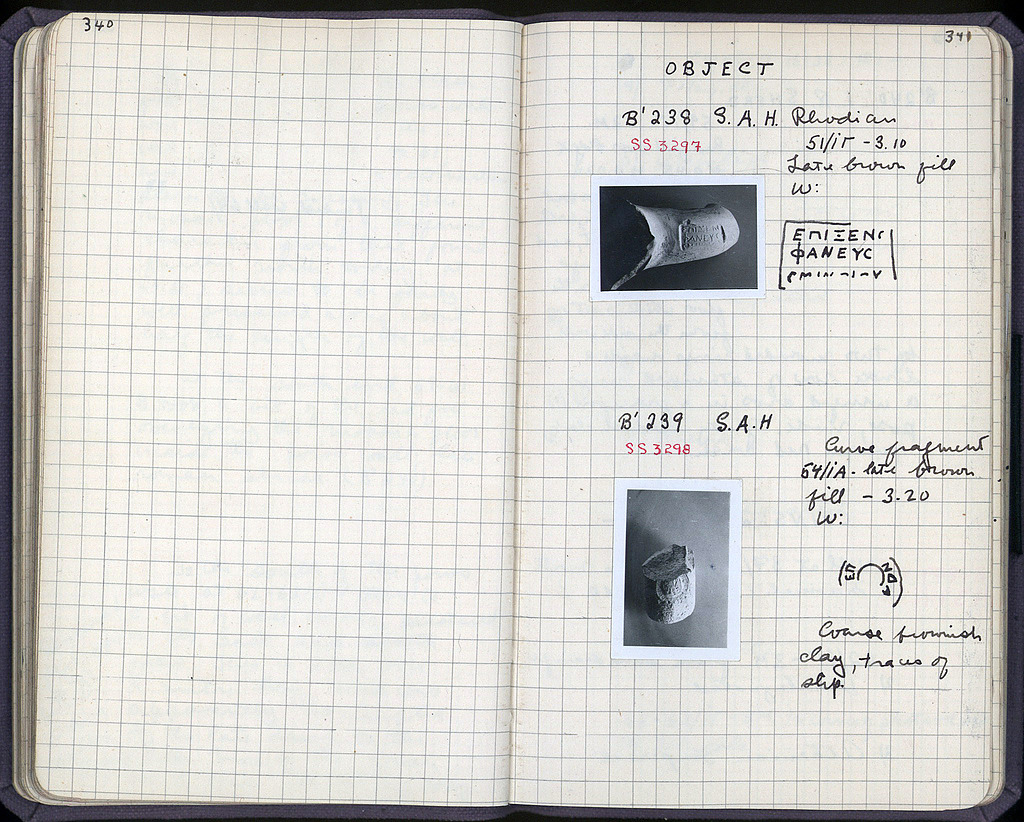 340
341
OBJECT
B' 238 S.A.H. Rhodian
SS 3297
51/ΙΓ - 3.10
Late brown fill
W:
ΕΠΙΞΕΝΟ
ΦΑΝΕΥC
B' 239 S.A.H
SS 3298
Curve fragment
54/ΙΑ - late brown
fill - 3.20
W:
ΕΠ
Coarse brownish
clay, traces of
slip.